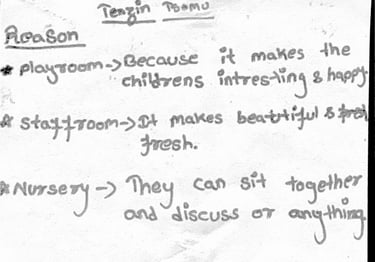 Tenzin Tsomo
Reason
* Playroom -> Because it makes the
childrens intresting & happy.
* Staffroom -> It makes beattiful & fresh
fresh.
* Nursery -> They can sit together
and discuss or anything.